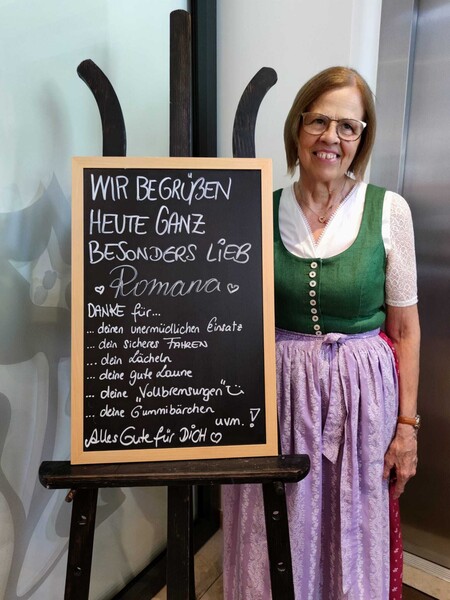 WIR BEGRÜßEN
HEUTE GANZ
BESONDERS LIEB
♡ Romana ♡
DANKE für...
... deinen unermüdlichen Einsatz
... dein sicheres FAHREN
... dein Lächeln
... deine gute Laune
... deine "Vollbremsungen" ☺
... deine Gummibärchen
uvm. !
Alles Gute für DICH ♡